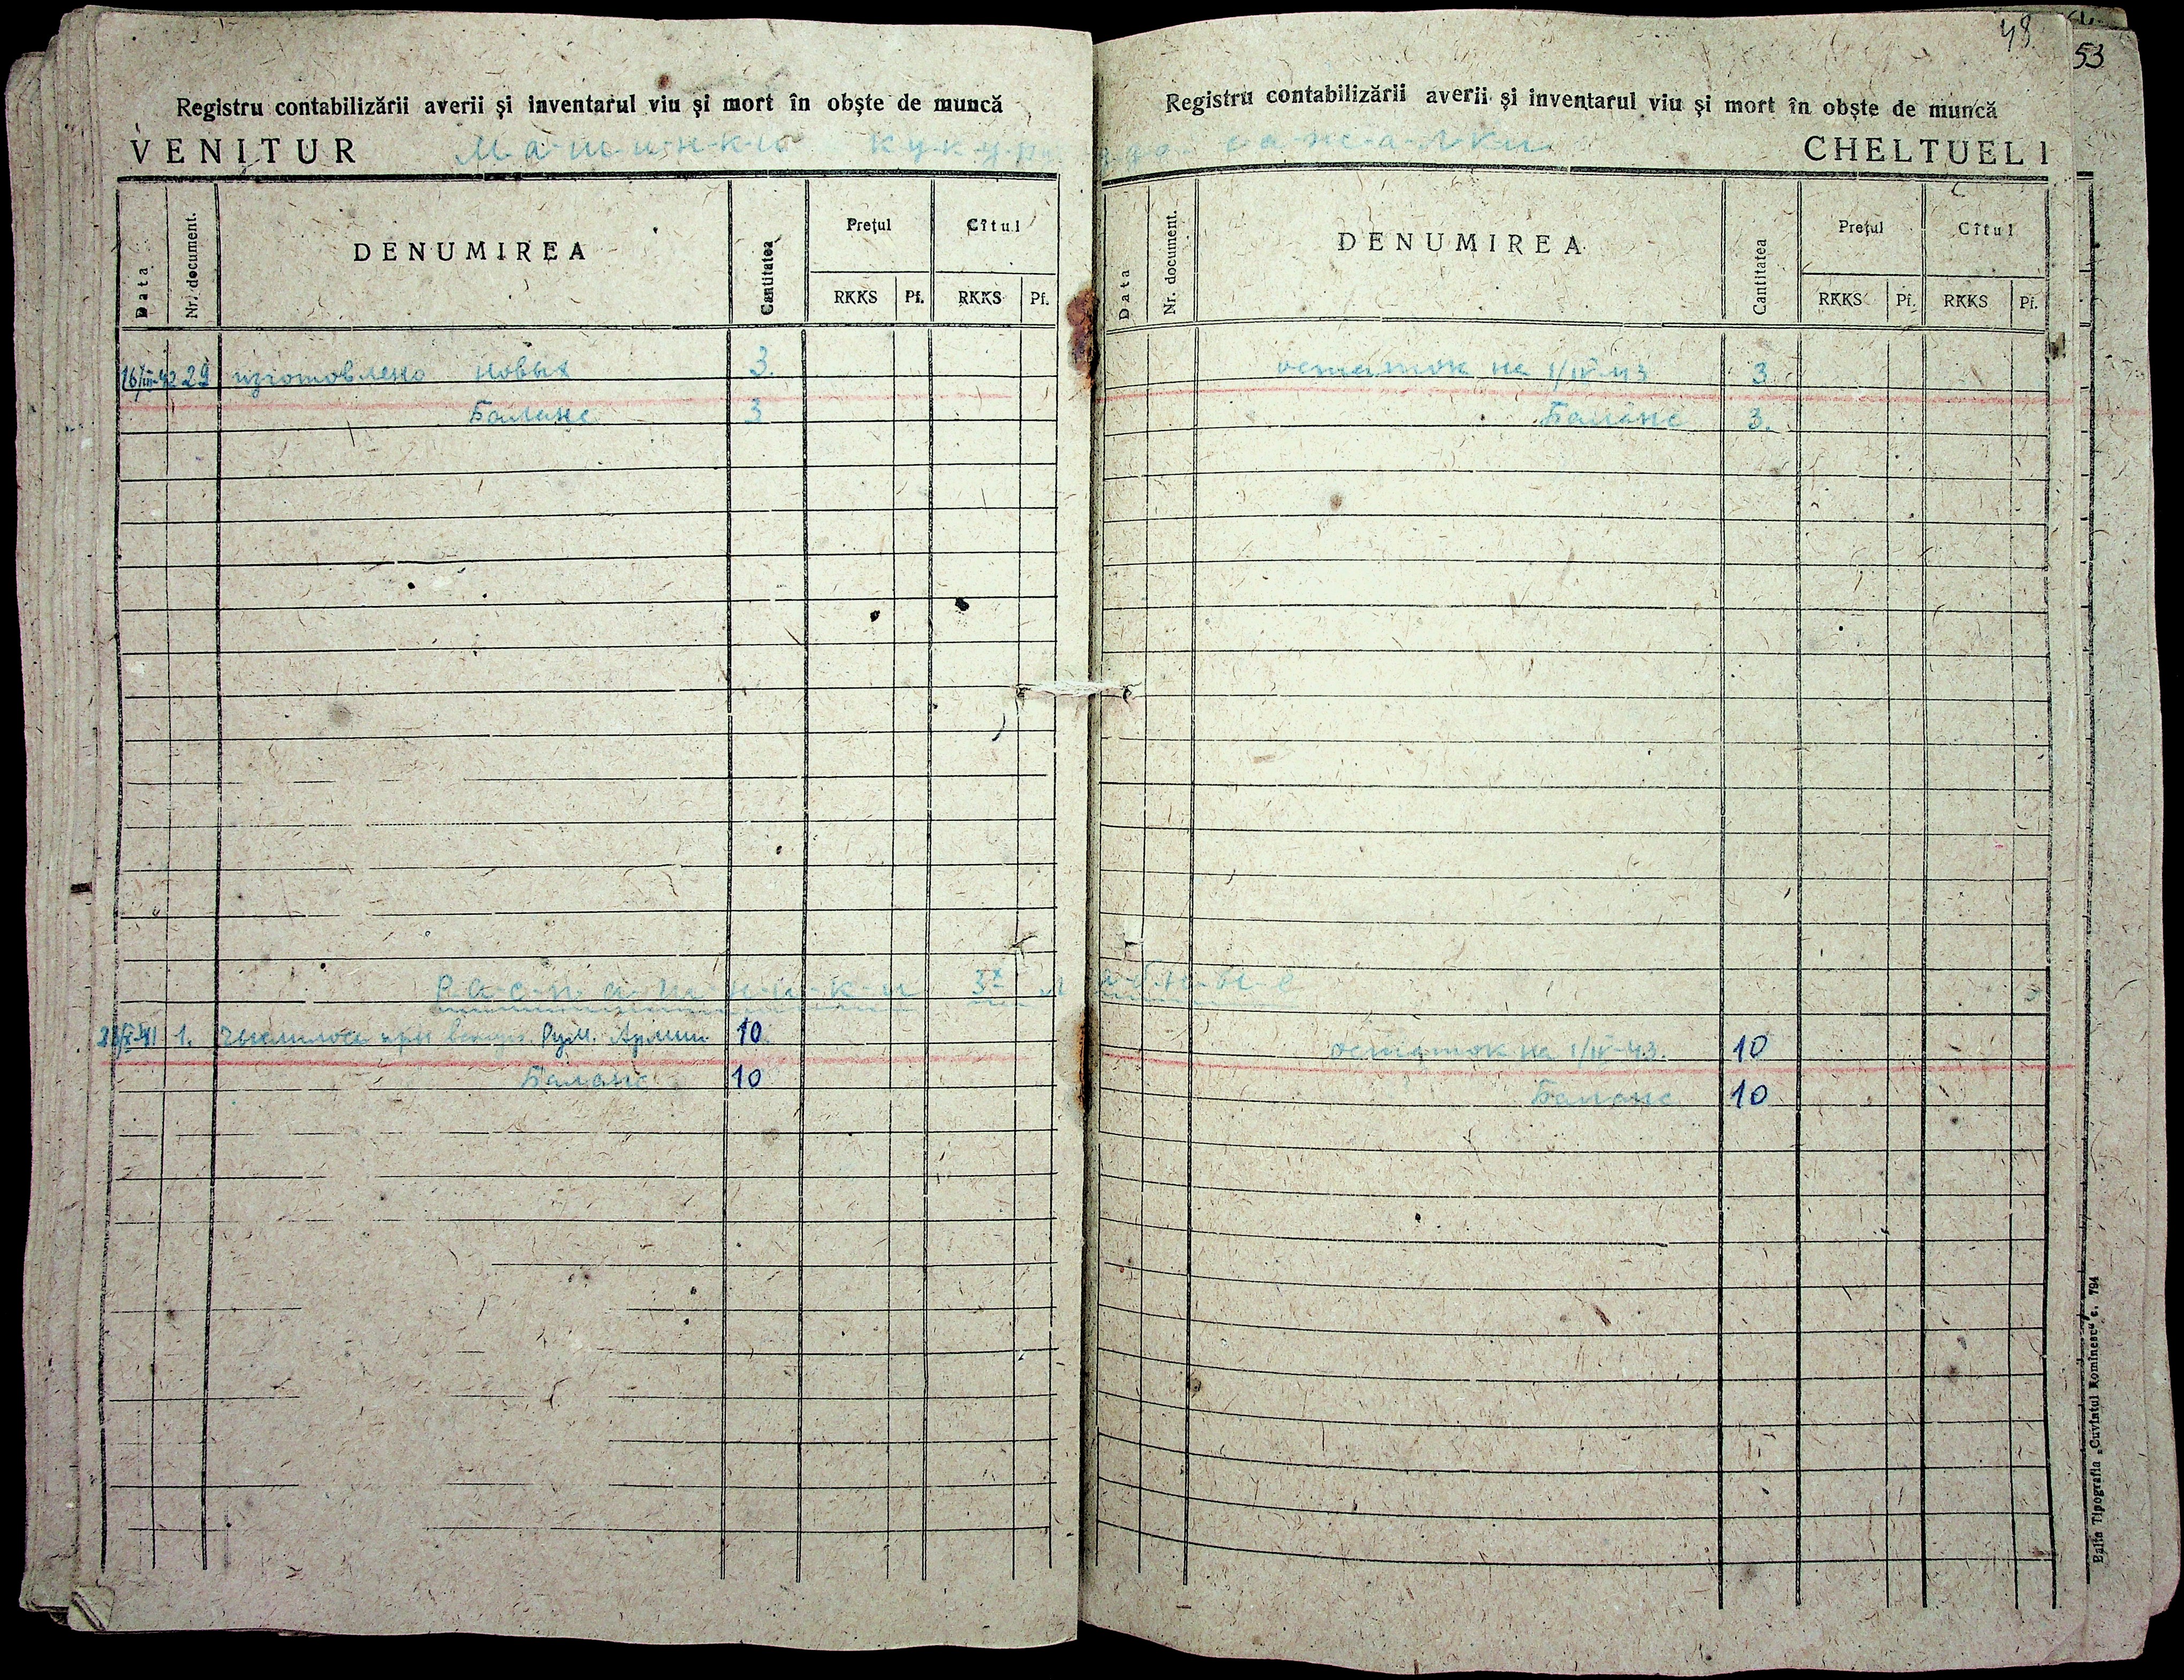 48
53
Registru contabilizării averii și inventarul viu și mort în obște de muncă
VENITUR
М-а-ш-и-н-к-и к-у-к-у-р
Data
Nr. document.
DENUMIREA
Cantitatea
Prețul
Cîtul
RKKS Pf. RKKS Pf.
16/III-42 29 изготовлено новых 3.
Баланс 3
Р-а-с-п-а-ш-н-и-к-и 3х л
1. при Рум. Армии 10
Баланс 10
Registru contabilizării averii și inventarul viu și mort în obște de muncă
с-а-ж-а-л-к-и
CHELTUELI
Data
Nr. document.
DENUMIREA
Cantitatea
Prețul
Cîtul
RKKS Pf. RKKS Pf.
остаток на 1/IV-43 3
Баланс 3.
а-п-н-ы-е
остаток на 1/IV-43. 10
Баланс 10
Balta Tipografia „Cuvîntul Romînesc" c. 794